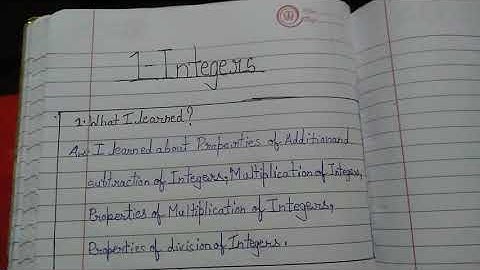 1-Integers
1. What I learned?
Ans I learned about Properties of Addition and
subtraction of Integers, Multiplication of Integers,
Properties of Multiplication of Integers,
Properties of division of Integers.